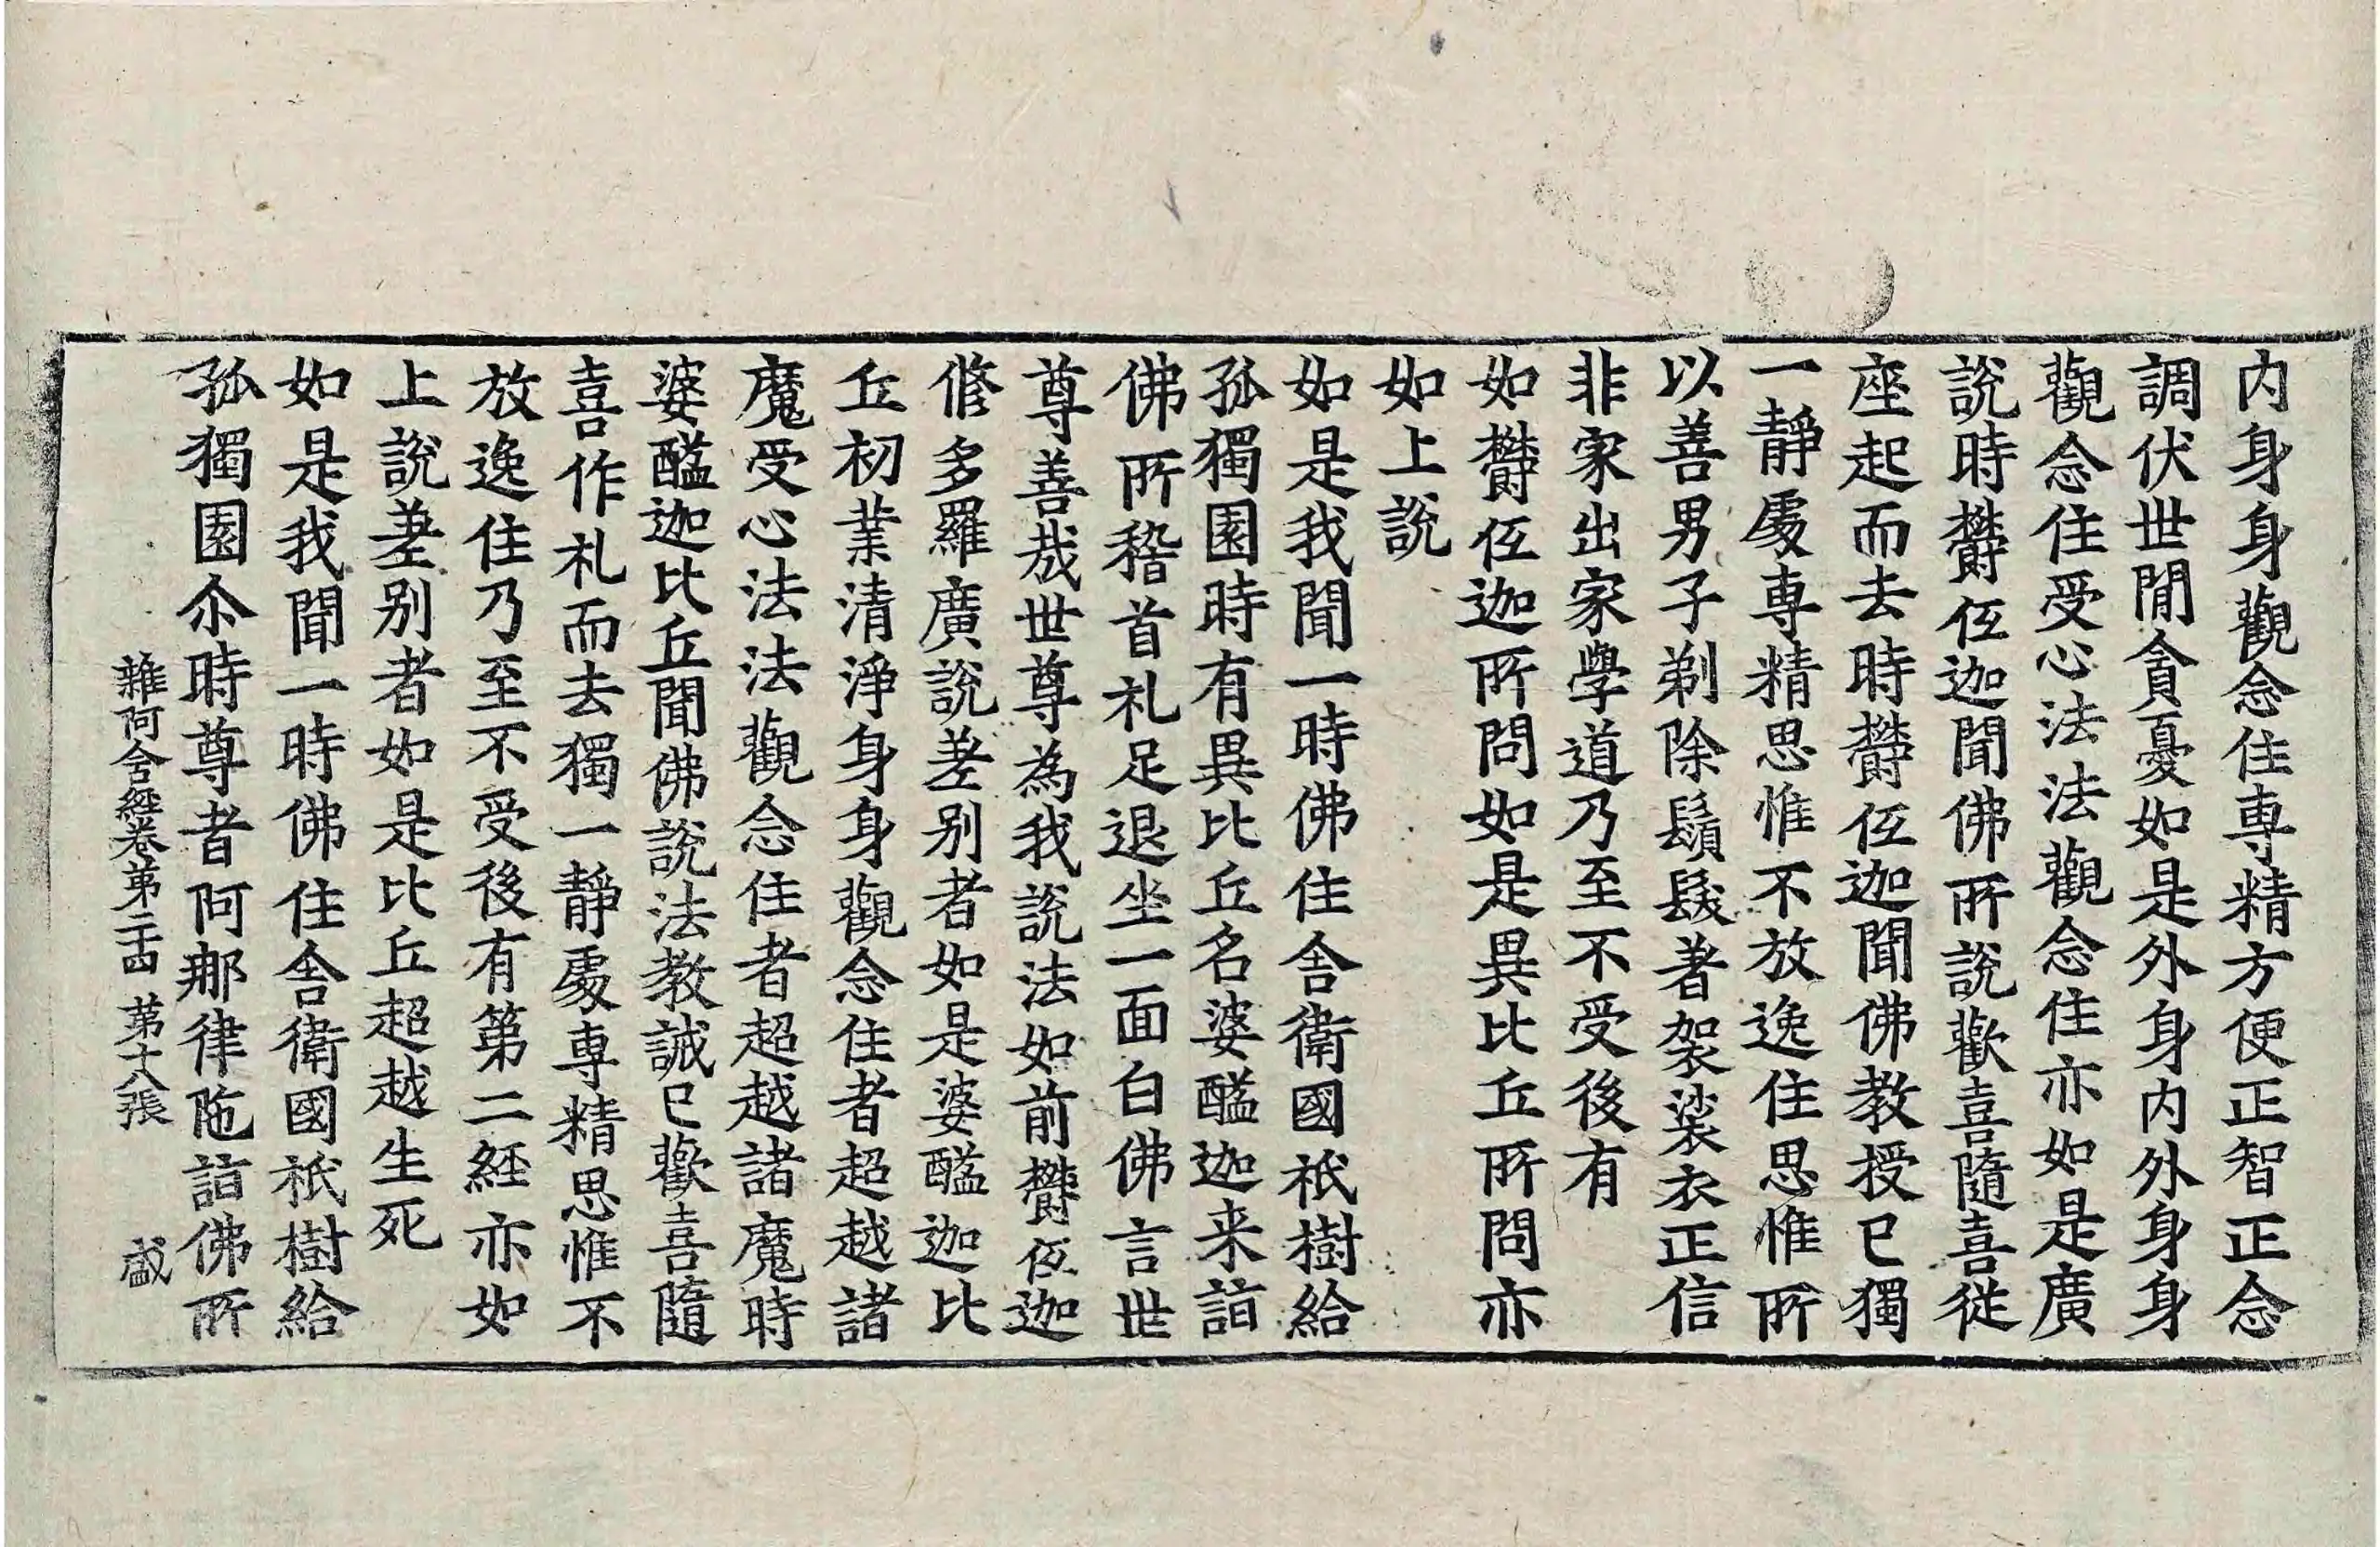 内身身觀念住專精方便正智正念
調伏世閒貪憂如是外身内外身身
觀念住受心法法觀念住亦如是廣
說時欝低迦聞佛所說歡喜隨喜從
座起而去時欝低迦聞佛教授已獨
一靜處專精思惟不放逸住思惟所
以善男子剃除鬚髮著袈裟衣正信
非家出家學道乃至不受後有
如欝低迦所問如是異比丘所問亦
如上說
如是我聞一時佛住舍衛國祇樹給
孤獨園時有異比丘名婆醯迦来詣
佛所稽首礼足退坐一面白佛言世
尊善哉世尊為我說法如前欝低迦
修多羅廣說差別者如是婆醯迦比
丘初業清淨身身觀念住者超越諸
魔受心法法觀念住者超越諸魔時
婆醯迦比丘聞佛說法教誡已歡喜隨
喜作礼而去獨一靜處專精思惟不
放逸住乃至不受後有第二経亦如
上說差別者如是比丘超越生死
如是我聞一時佛住舍衛國祇樹給
孤獨園尒時尊者阿那律陁詣佛所
雜阿含經卷第二十四 第十八張 盛